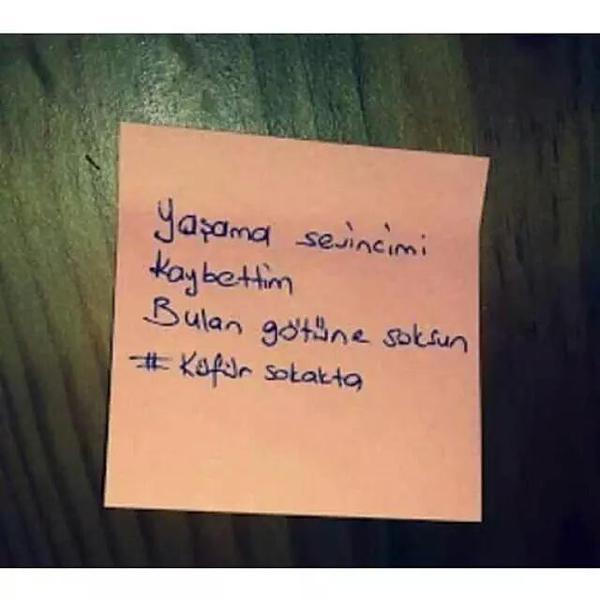 Yaşama sevincimi
Kaybettim
Bulan götüne soksun
# Küfür sokakta